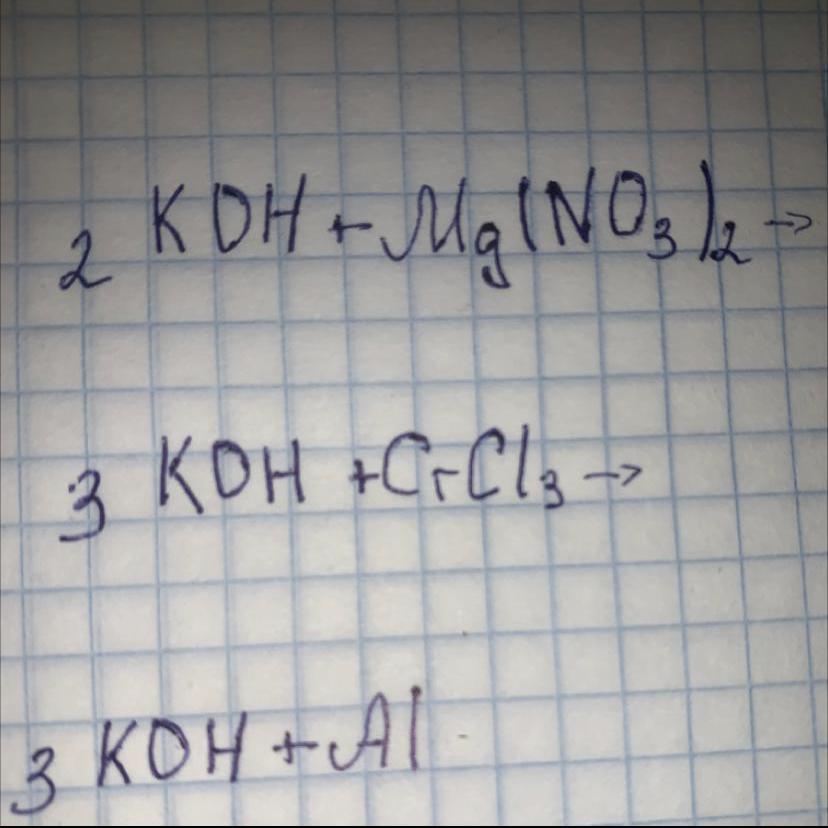 2 KOH + Mg(NO₃)₂ →
3 KOH + CrCl₃ →
3 KOH + Al